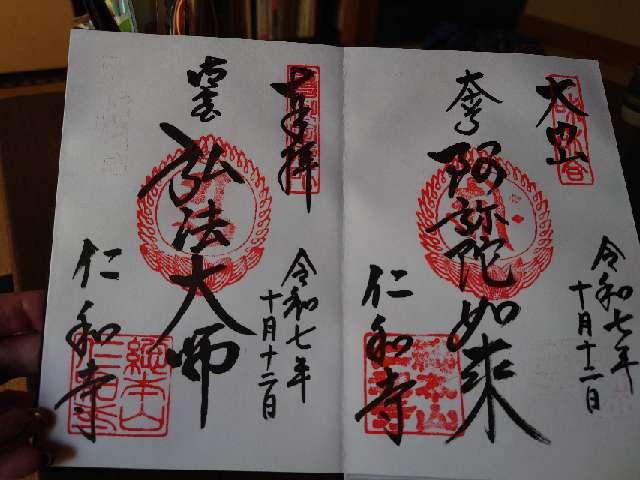 大内山
阿弥陀如来
仁和寺
令和七年
十月十二日
総本山
仁和寺
奉拝
御室
弘法大師
仁和寺
令和七年
十月十二日
総本山
仁和寺